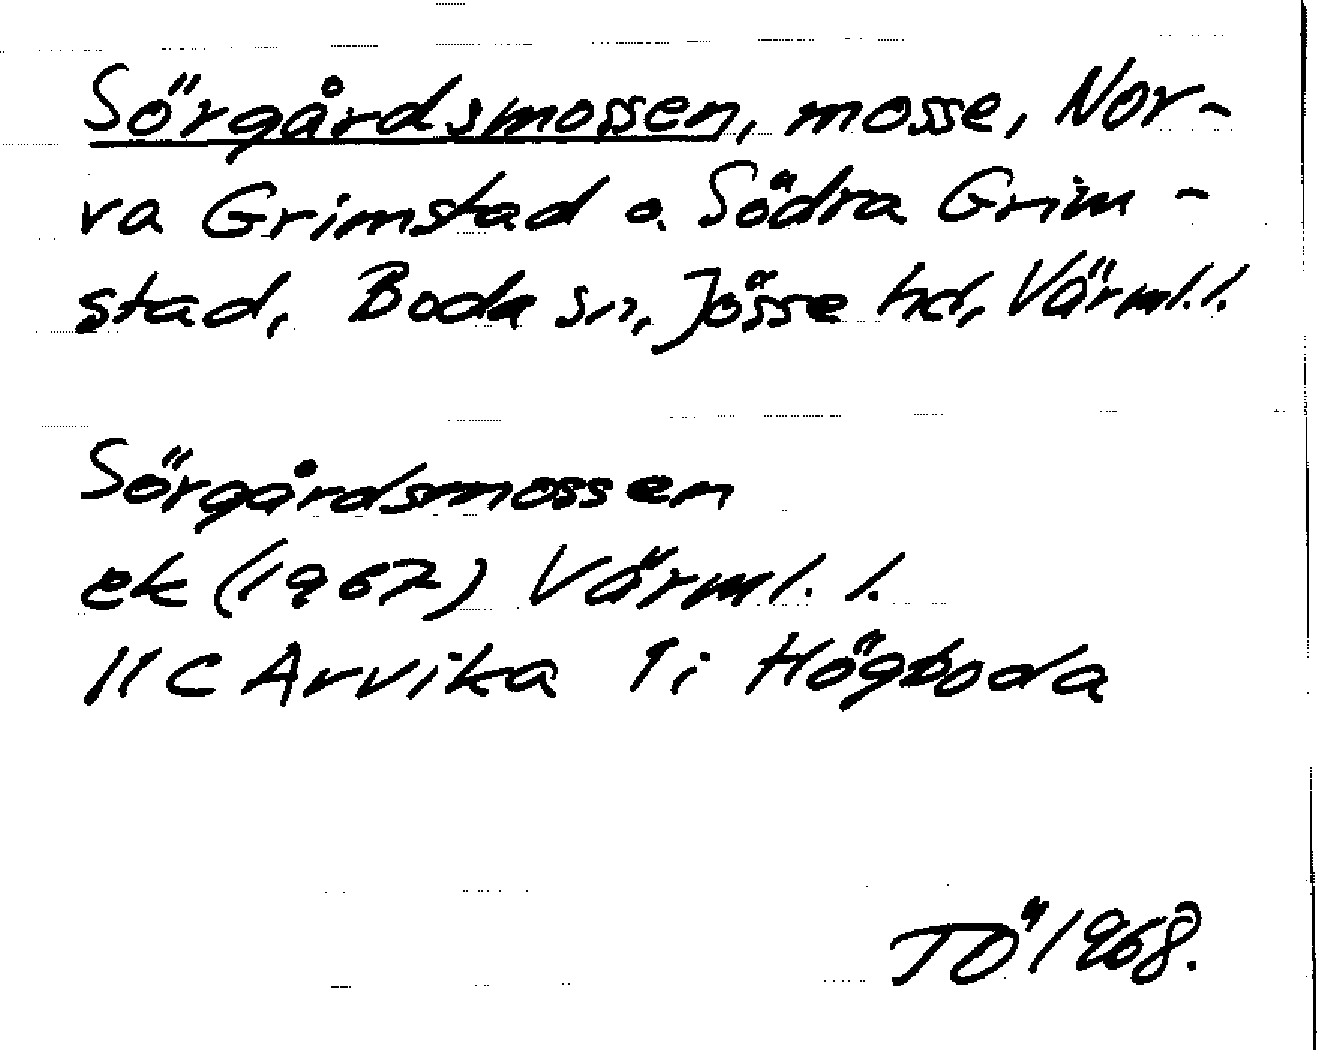 Sörgårdsmossen, mosse, Nor-
ra Grimstad o. Södra Grim-
stad, Boda sn, Jösse hd, Värml. l.
Sörgårdsmossen
ek (1967) Värml. l.
11C Arvika 9i Högboda
TÖ 1968.